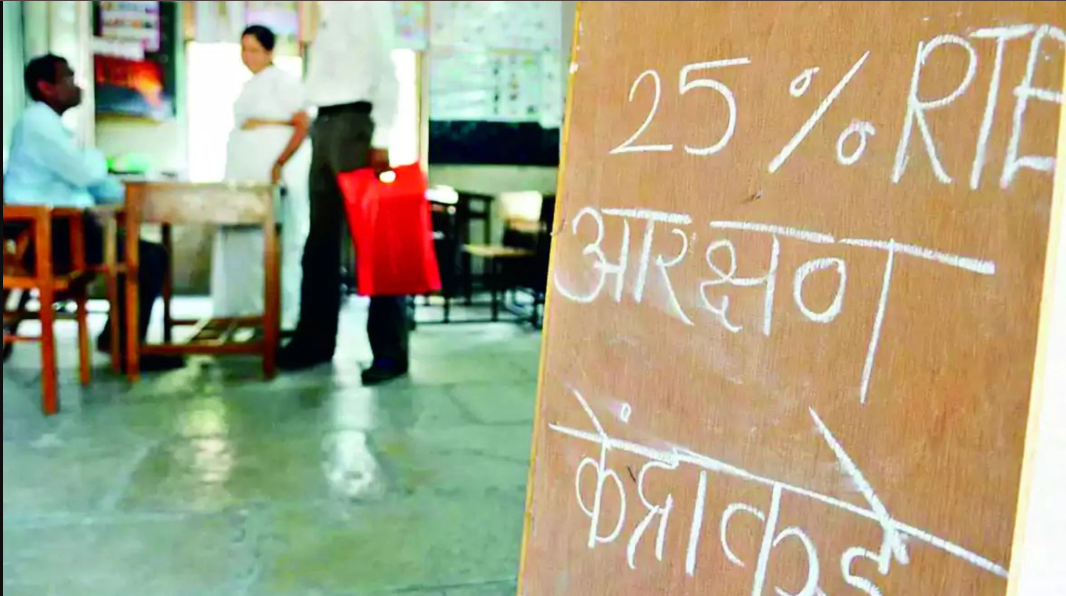 25% RTE
आरक्षण
केंद्राकडे